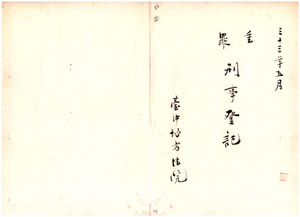 三十三年五月
重罪
刑事登記
臺中地方法院